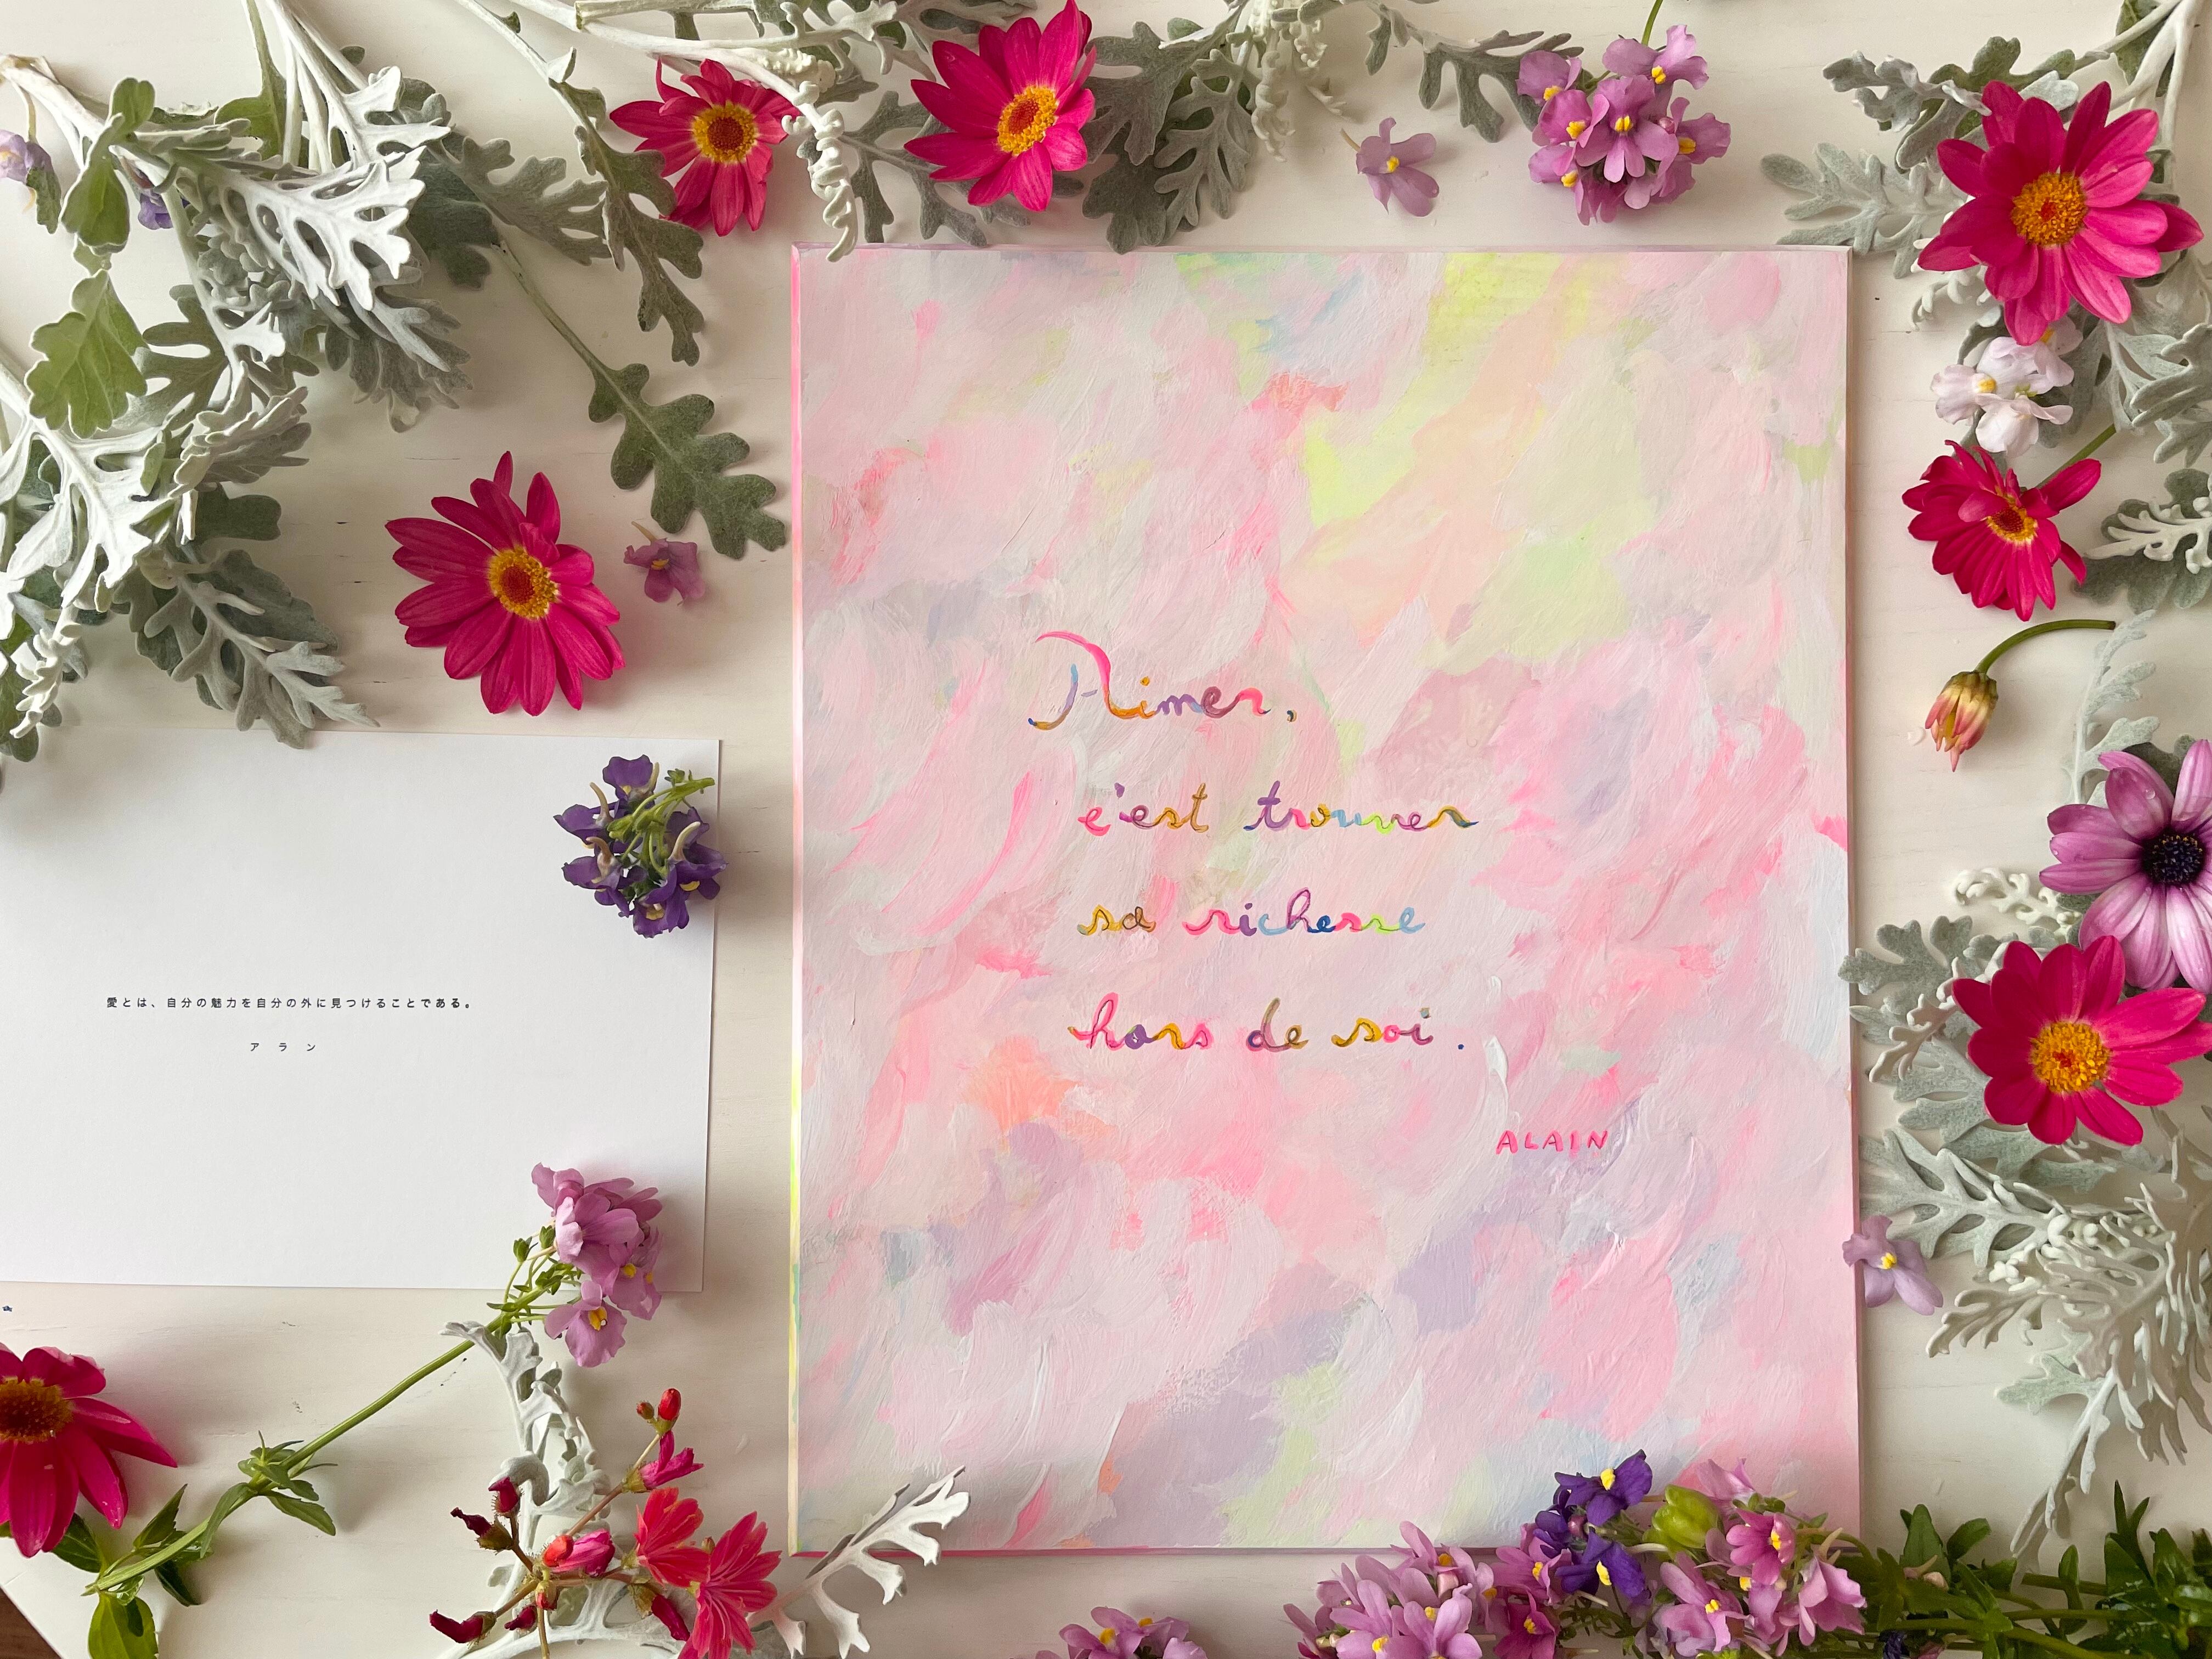 愛とは、自分の魅力を自分の外に見つけることである。
アラン
Aimer,
c'est trouver
sa richesse
hors de soi.
ALAIN